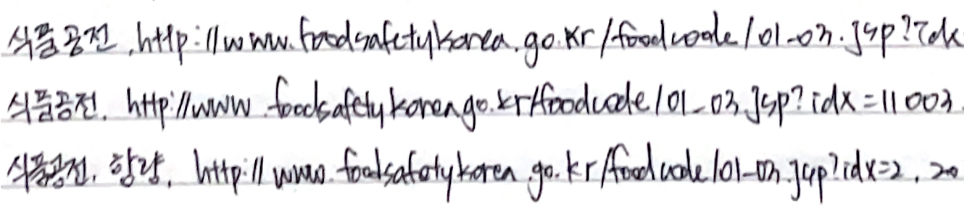 식품공전, http://www.foodsafetykorea.go.kr/foodcode/01-03.jsp?idx
식품공전. http://www.foodsafetykorea.go.kr/foodcode/01_03.jsp?idx=11003
식품공전, 함량, http://www.foodsafetykorea.go.kr/foodcode/01-03.jsp?idx=2, 20